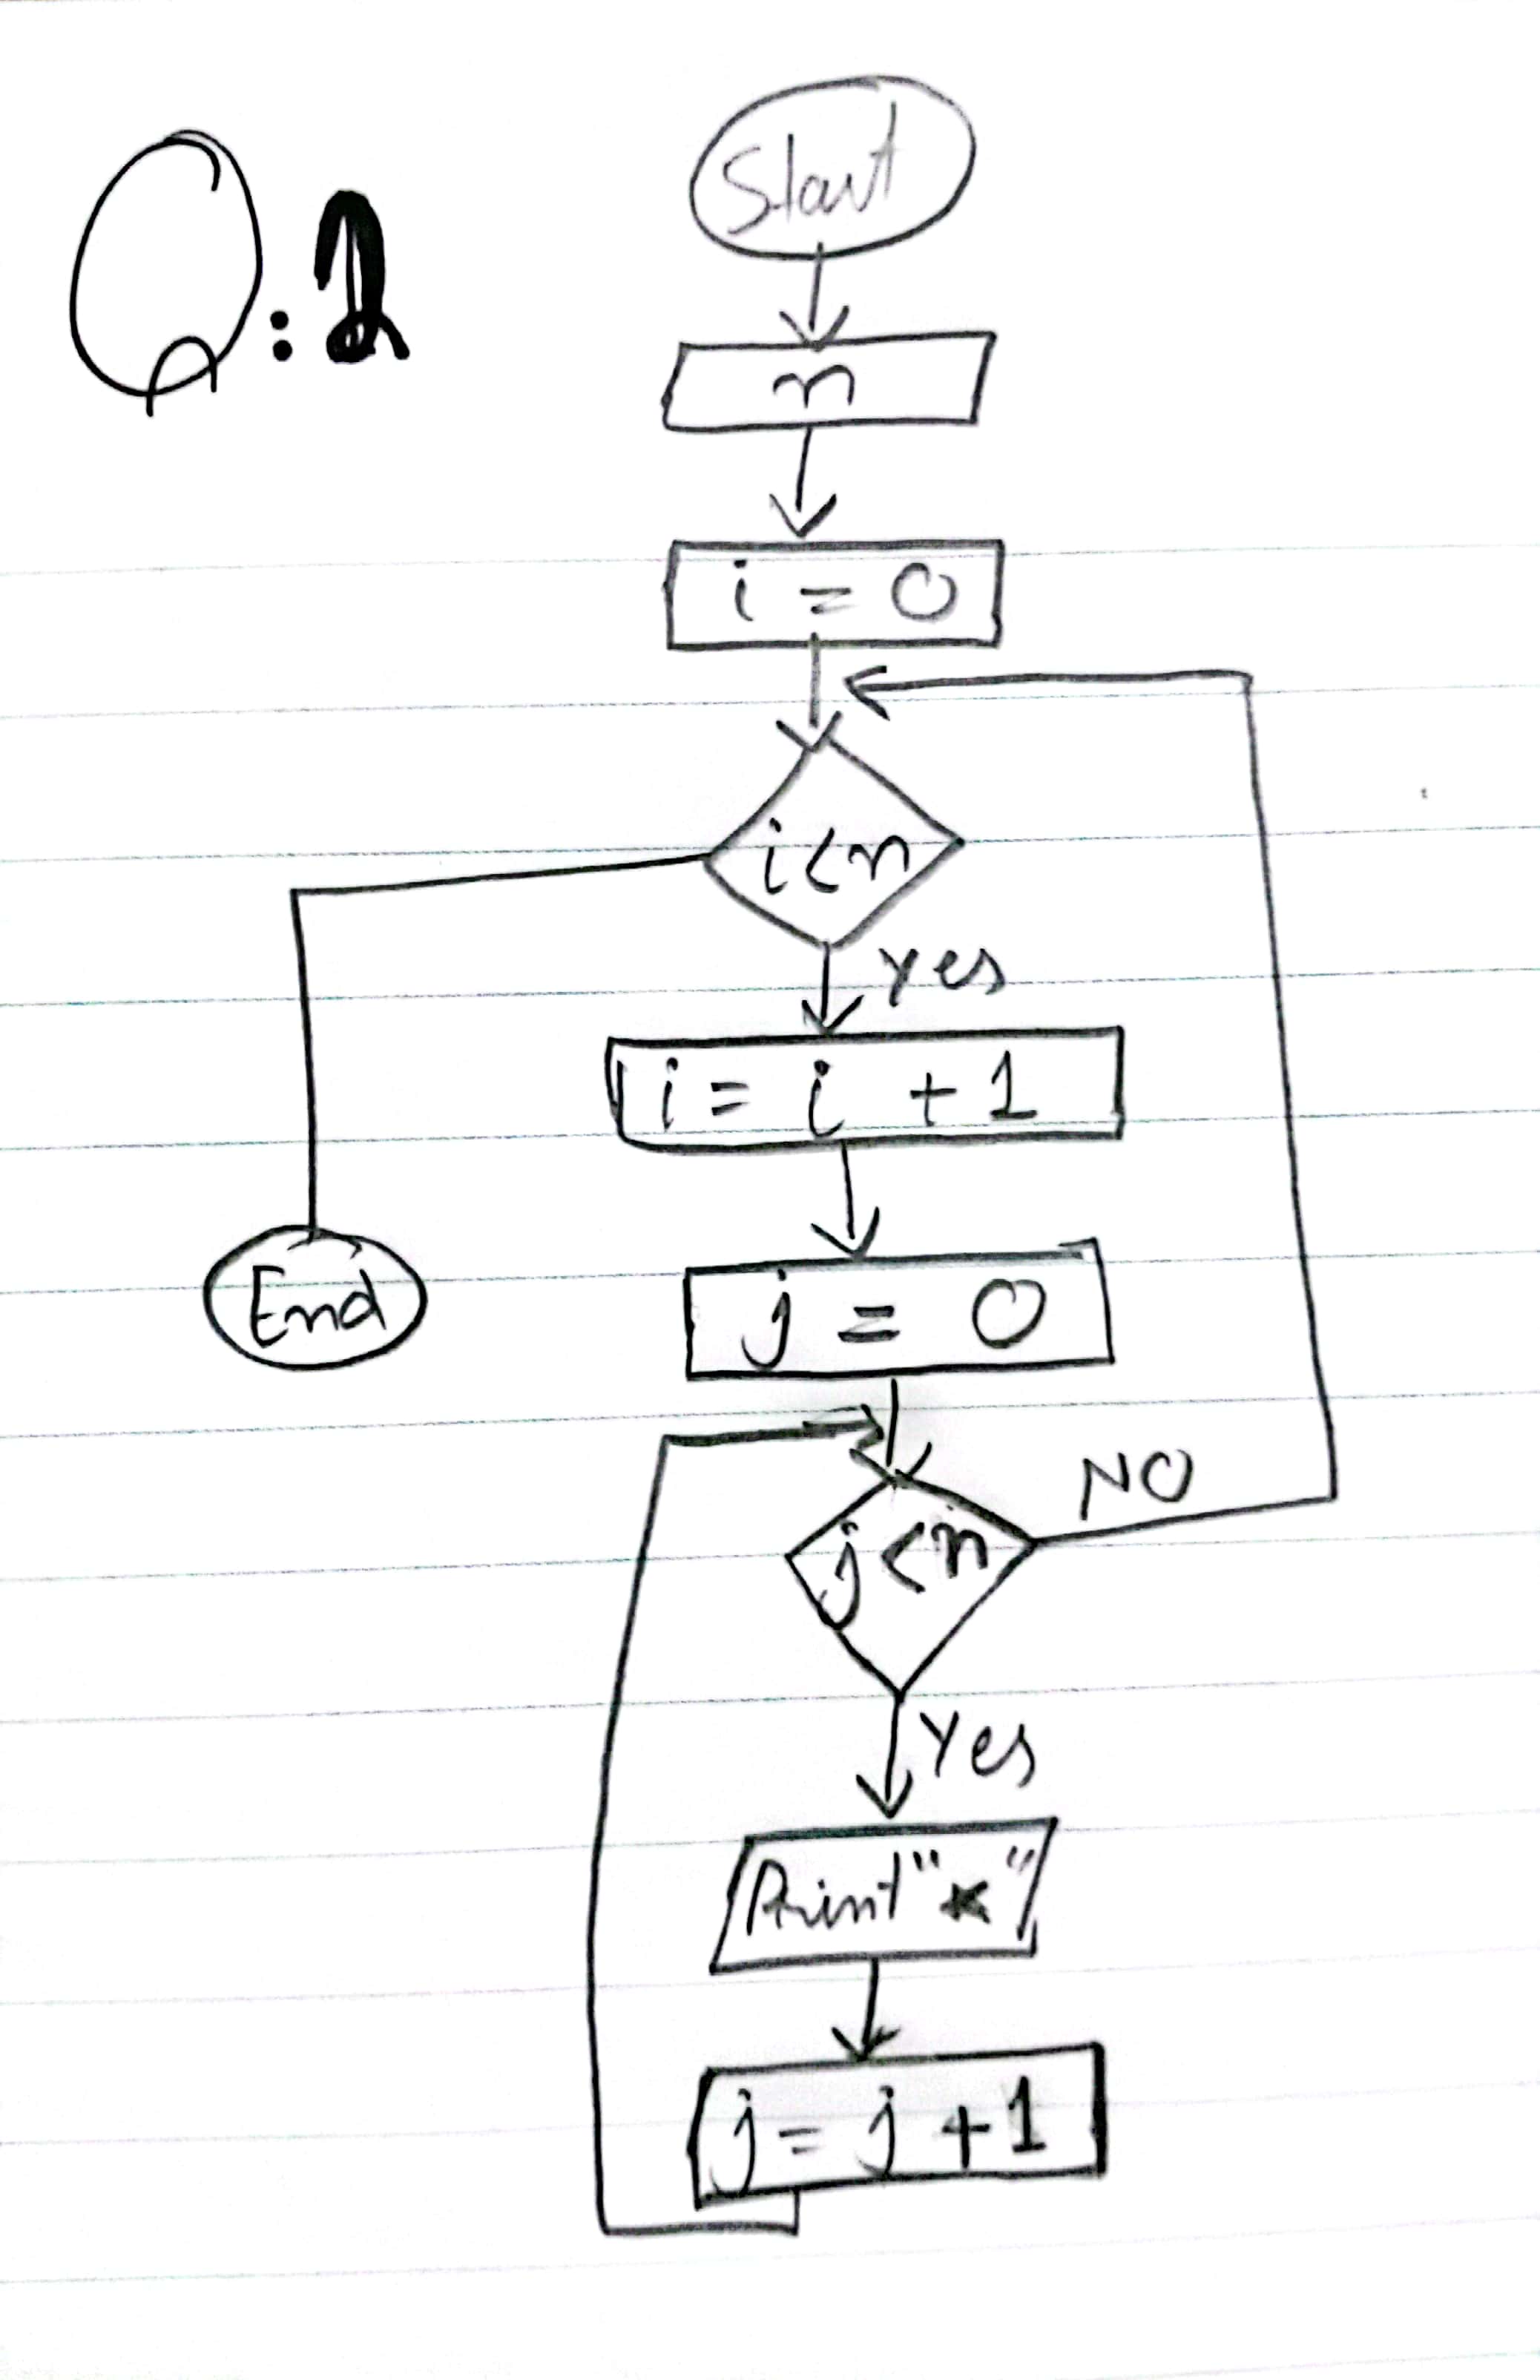 Q:1
Start
n
i = 0
i<n
yes
i = i + 1
j = 0
End
j<n
NO
Yes
Print "*"
j = j + 1